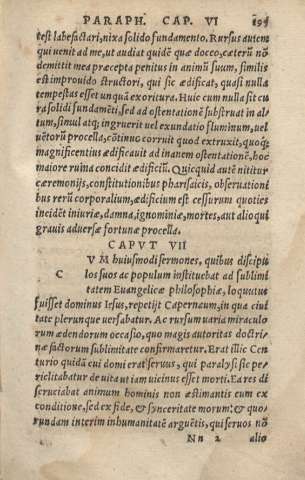 PARAPH. CAP. VI 195
test labefactari, nixa solido fundamento. Rursus autem
qui uenit ad me, ut audiat quidē quæ doceo, cæterū nō
demittit mea præcepta penitus in animū suum, similis
est improuido structori, qui sic ædificat, quasi nulla
tempestas esset unquā exoritura. Huic cum nulla sit cu
ra solidi fundamēti, sed ad ostentationē substruat in al⸗
tum, simul atq; ingruerit uel exundatio fluminum, uel
uētorū procella, cōtinuc corruit quod extruxit, quoq;
magnificentius ædificauit ad inanem ostentationē, hoc
maiore ruina concidit ædificiū. Quicquid autē nititur
cæremonijs, constitutionibus pharsaicis, obseruationi
bus rerū corporalium, ædificium est cessurum quoties
incidēt iniuriæ, damna, ignominiæ, mortes, aut alioqui
grauis aduersæ fortunæ procella.
CAPVT VII
C VM huiusmodi sermones, quibus discipu
los suos ac populum instituebat ad sublimi
tatem Euangelicæ philosophiæ, loquutus
fuisset dominus Iesus, repetijt Capernaum, in qua ciui
tate plerunque uersabatur. Ac rursum uaria miraculo
rum ædendorum occasio, quo magis autoritas doctri⸗
næ factorum sublimitate confirmaretur. Erat illic Cen
turio quidā cui domi erat seruus, qui paralysi sic pe⸗
riclitabatur de uita ut iam uicinus esset morti. Ea res di
scruciabat animum hominis non æstimantis eum ex
conditione, sed ex fide, & synceritate morum: & quo⸗
rundam interim inhumanitatē arguētis, qui seruos nō
Nn 2 alio